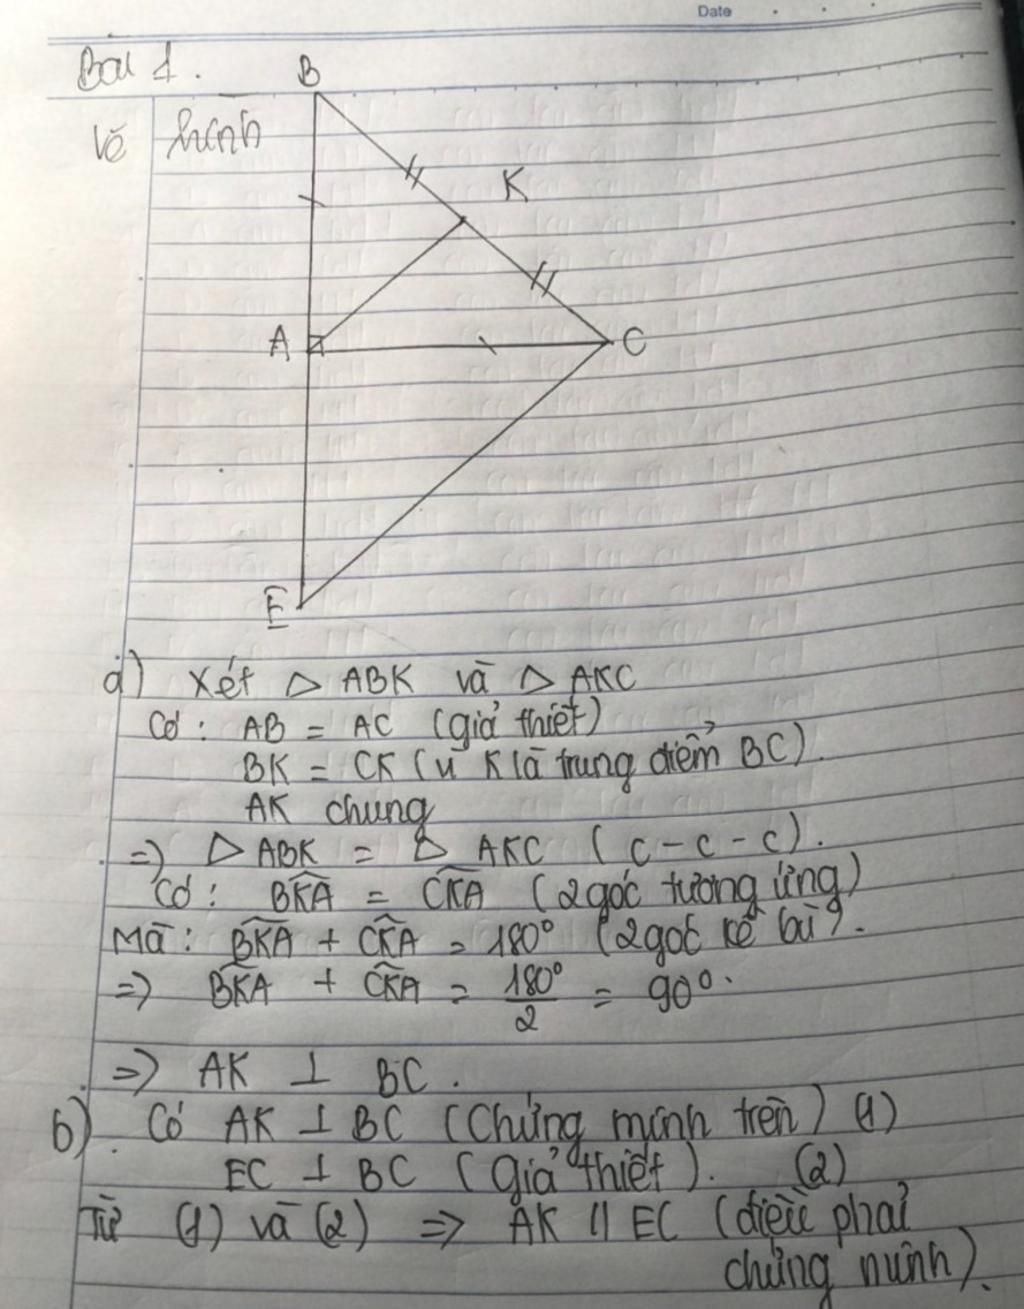 Date
Bài 1.
B
Vẽ hình
K
A
C
E
a) Xét △ ABK và △ AKC
Có : AB = AC (giả thiết)
BK = CK (vì K là trung điểm BC).
AK chung
=> △ ABK = △ AKC ( c - c - c ).
Có : \widehat{BKA} = \widehat{CKA} (2 góc tương ứng)
Mà : \widehat{BKA} + \widehat{CKA} = 180° (2 góc kề bù).
=> \widehat{BKA} + \widehat{CKA} = \frac{180°}{2} = 90°.
=> AK ⊥ BC .
b). Có AK ⊥ BC (Chứng minh trên) (1)
EC ⊥ BC (Giả thiết). (2)
Từ (1) và (2) => AK // EC (điều phải
chứng minh).